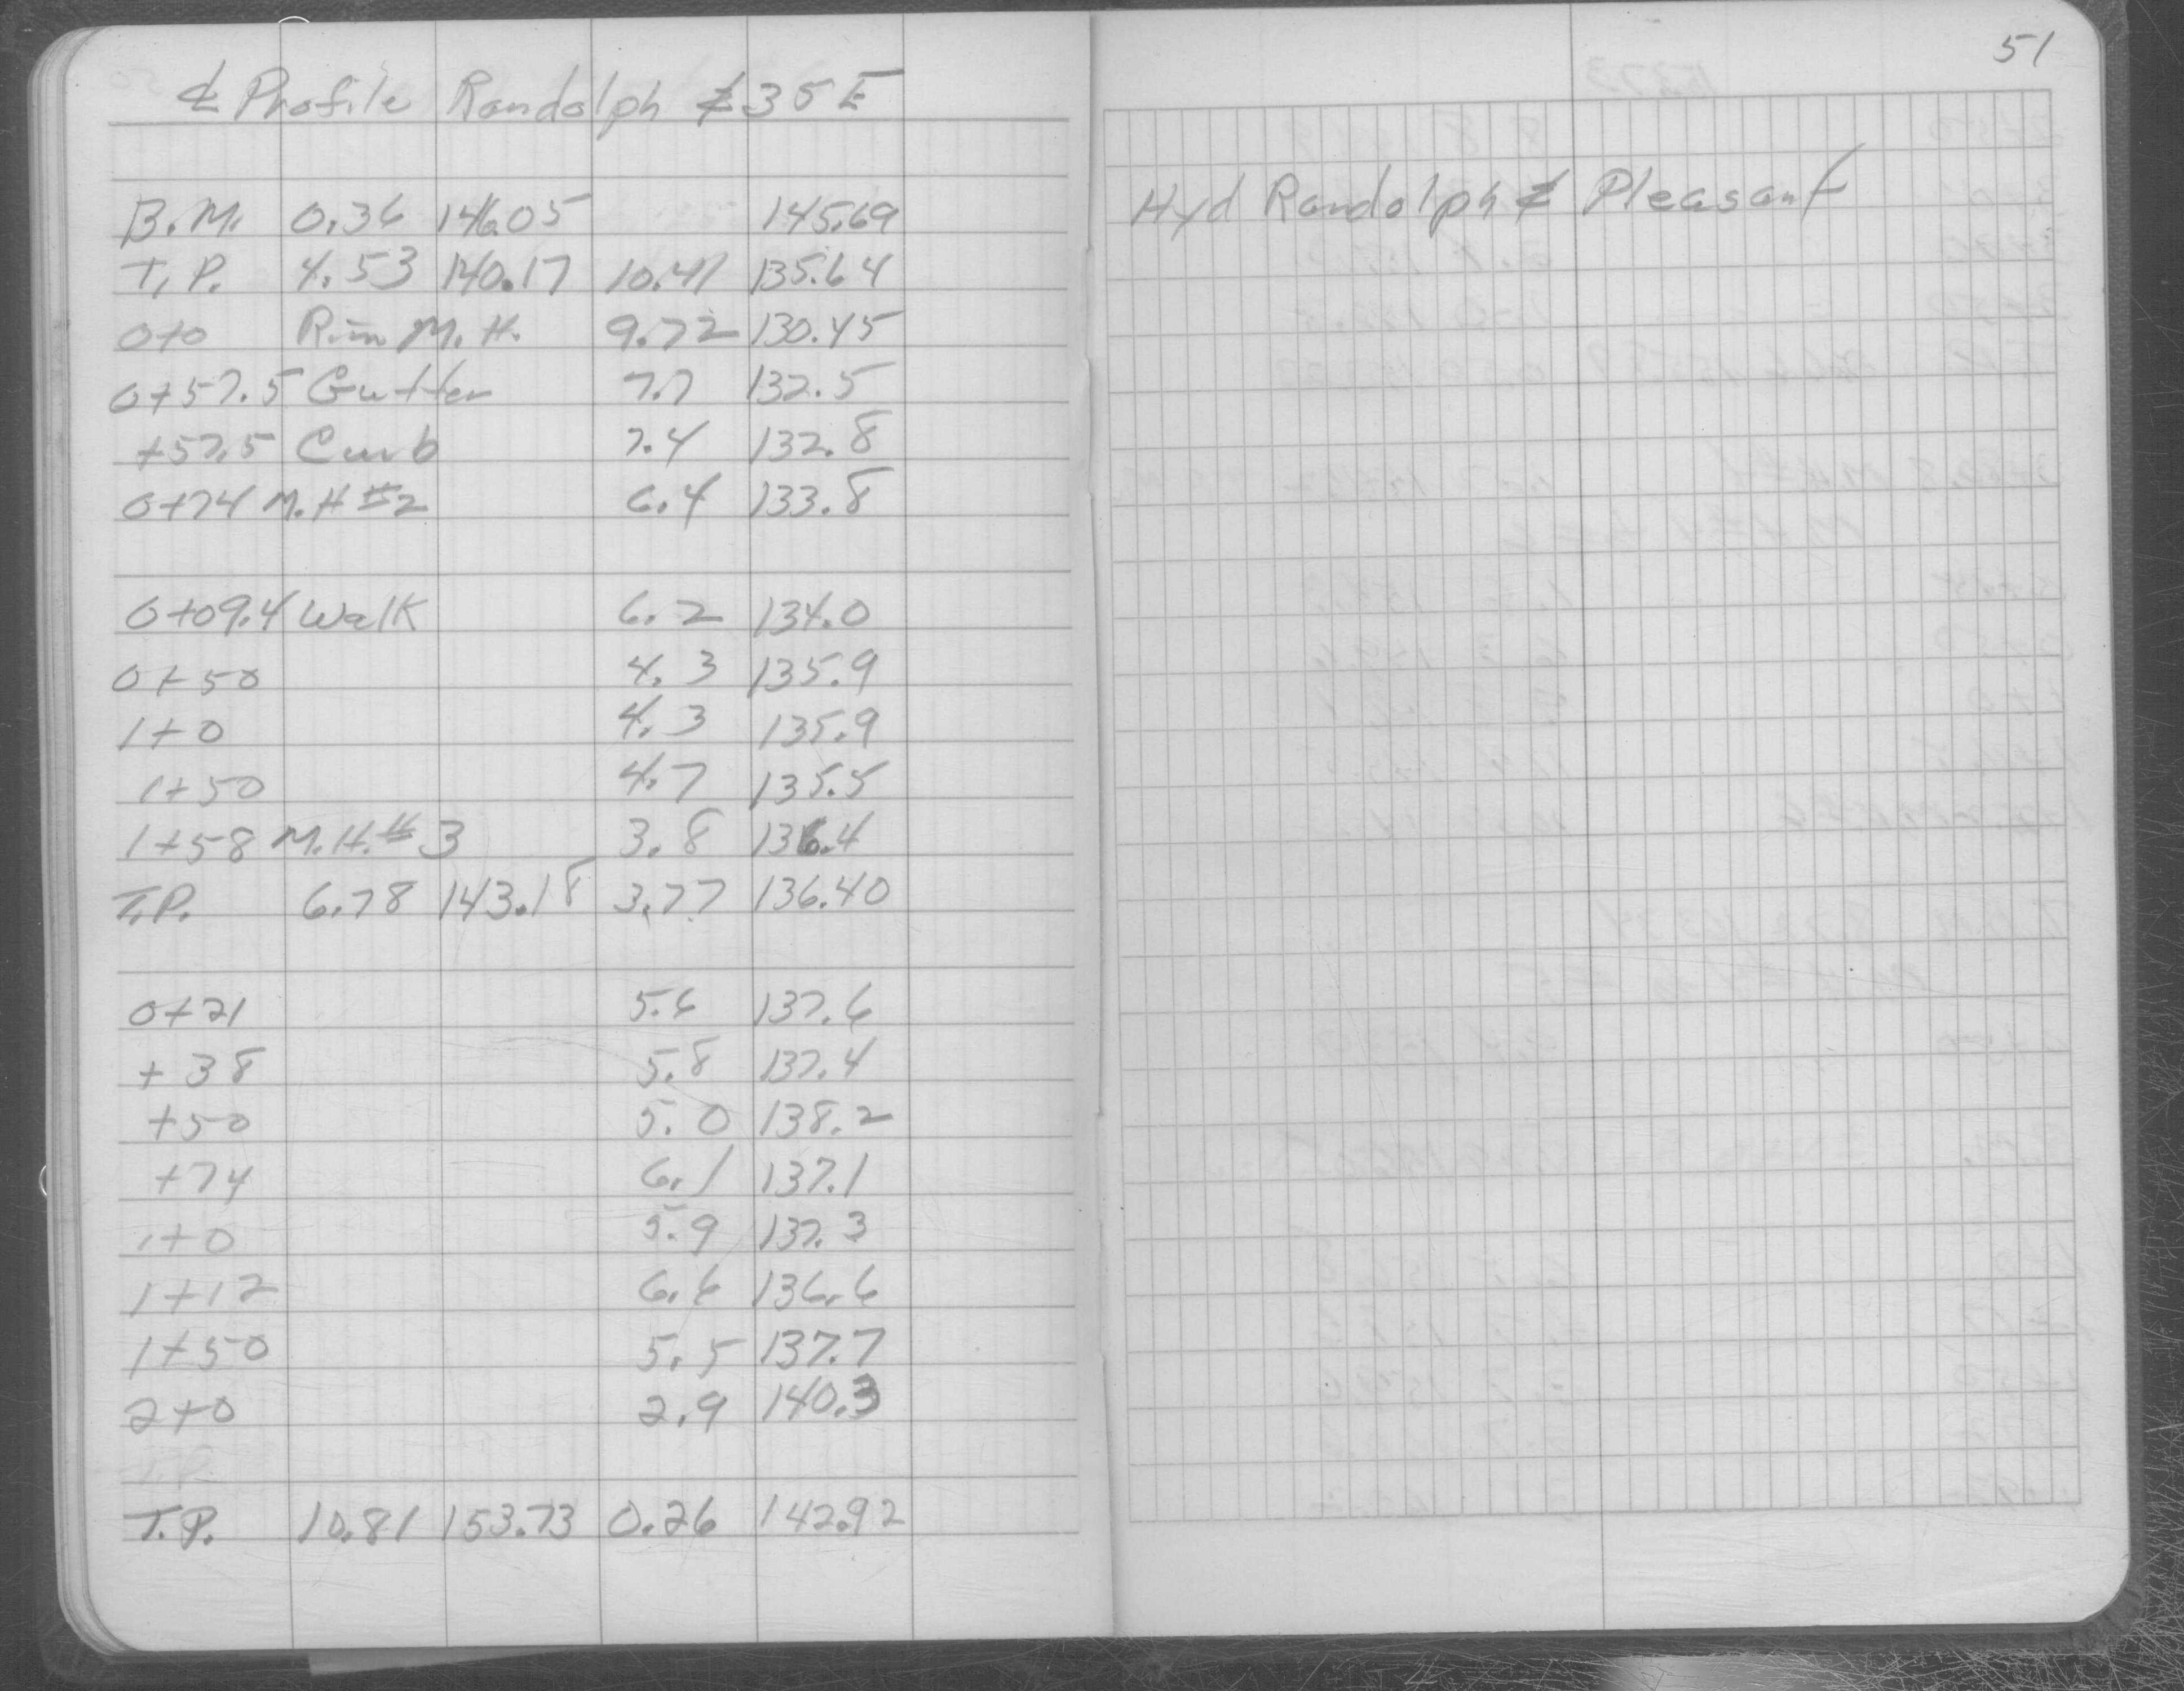 ℄ Profile Randolph & 35E
B.M. 0.36 146.05 145.69
T.P. 4.53 140.17 10.41 135.64
0+0 Rim M.H. 9.72 130.45
0+57.5 Gutter 7.7 132.5
+57.5 Curb 7.4 132.8
0+74 M.H #2 6.4 133.8
0+09.4 Walk 6.2 134.0
0+50 4.3 135.9
1+0 4.3 135.9
1+50 4.7 135.5
1+58 M.H.#3 3.8 136.4
T.P. 6.78 143.18 3.77 136.40
0+21 5.6 137.6
+38 5.8 137.4
+50 5.0 138.2
+74 6.1 137.1
1+0 5.9 137.3
1+12 6.6 136.6
1+50 5.5 137.7
2+0 2.9 140.3
T.P.
T.P. 10.81 153.73 0.26 142.92
51
Hyd Randolph & Pleasant